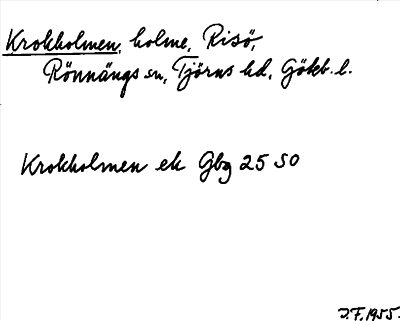 Krokholmen, holme, Risö,
Rönnängs sn, Tjörns hd, Göteb. l.
Krokholmen ek Gbg 25 SO
J.F. 1955.